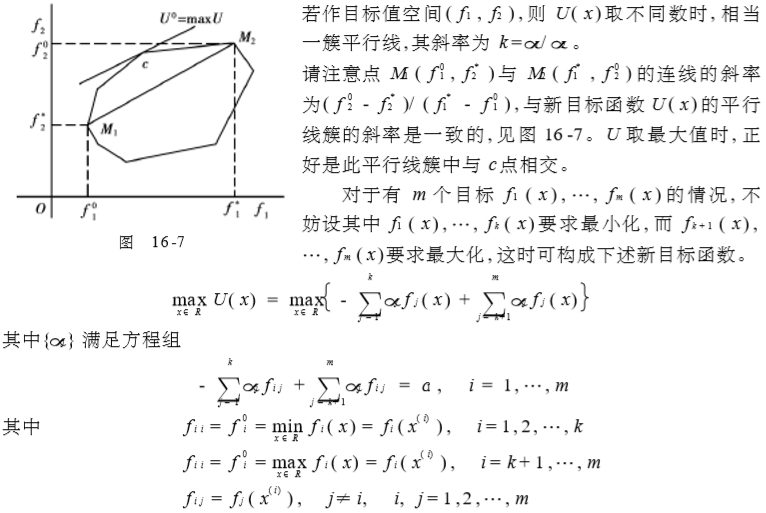 U⁰=maxU
f₂
f₂⁰
M₂
c
f₂*
M₁
O f₁⁰ f₁* f₁
图 16-7
若作目标值空间(f₁,f₂),则 U(x)取不同数时,相当
一簇平行线,其斜率为 k=α/α。
请注意点 M₁(f₁⁰,f₂*)与 M₂(f₁*,f₂⁰)的连线的斜率
为(f₂⁰-f₂*)/(f₁*-f₁⁰),与新目标函数 U(x)的平行
线簇的斜率是一致的,见图 16-7。U 取最大值时,正
好是此平行线簇中与 c点相交。
对于有 m 个目标 f₁(x),…,fₘ(x)的情况,不
妨设其中 f₁(x),…,fₖ(x)要求最小化,而 fₖ₊₁(x),
…,fₘ(x)要求最大化,这时可构成下述新目标函数。
max_{x∈R} U(x) = max_{x∈R}{-∑_{j=1}^{k} αⱼfⱼ(x) + ∑_{j=k+1}^{m} αⱼfⱼ(x)}
其中{αⱼ} 满足方程组
-∑_{j=1}^{k} αⱼf_{ij} + ∑_{j=k+1}^{m} αⱼf_{ij} = a, i = 1,…,m
其中 f_{ii} = f_i⁰ = min_{x∈R} f_i(x) = f_i(x^{(i)}), i=1,2,…,k
f_{ii} = f_i⁰ = max_{x∈R} f_i(x) = f_i(x^{(i)}), i=k+1,…,m
f_{ij} = f_j(x^{(i)}), j≠i, i, j=1,2,…,m